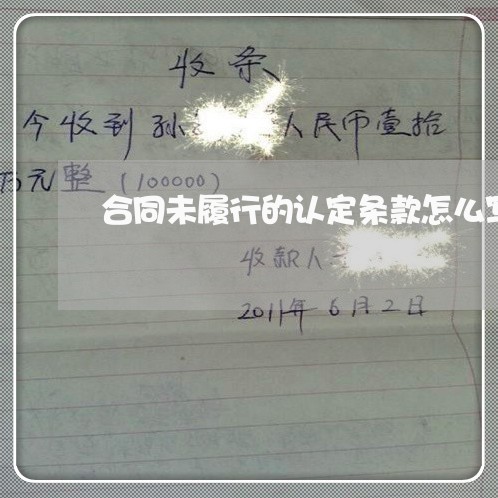 收条
今收到孙 人民币壹拾
万元整(100000)
合同未履行的认定条款怎么
收款人
2011年6月2日